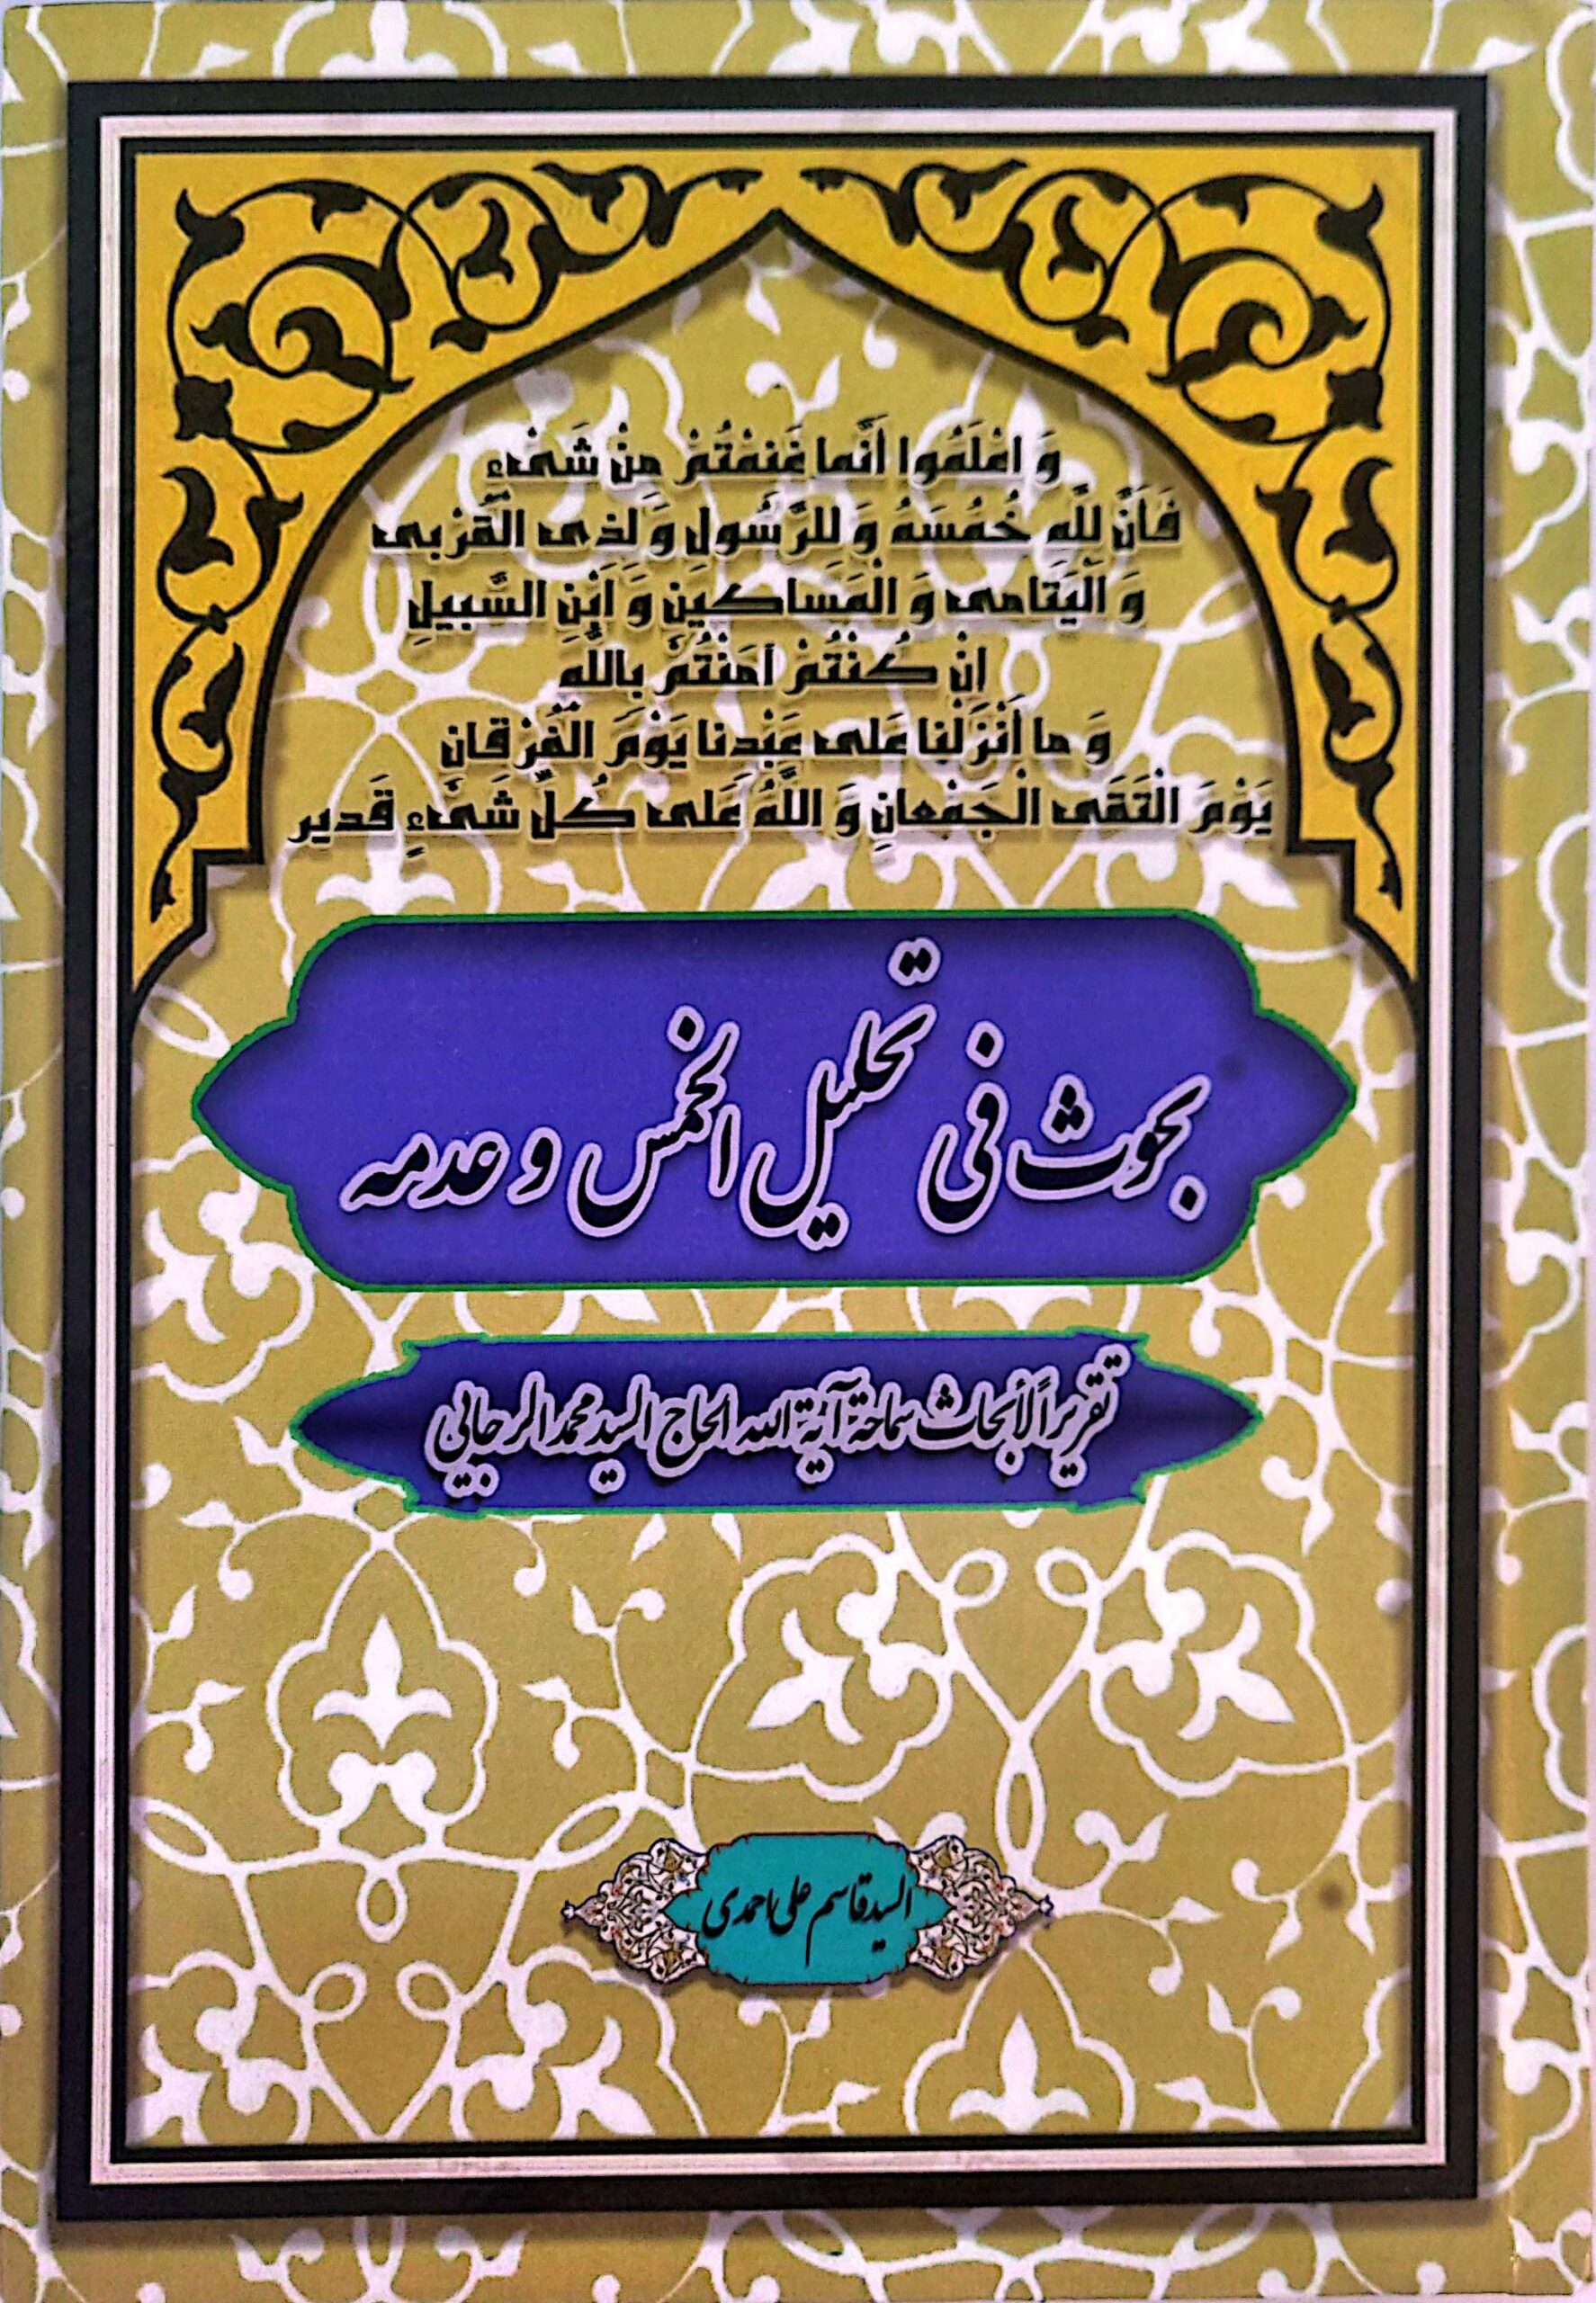 وَ اعْلَمُوا أَنَّما غَنِمْتُمْ مِنْ شَىْءٍ
فَأَنَّ لِلَّهِ خُمُسَهُ وَ لِلرَّسُولِ وَ لِذِى الْقُرْبى
وَ الْيَتامى وَ الْمَساكِينِ وَ ابْنِ السَّبِيلِ
إِنْ كُنْتُمْ آمَنْتُمْ بِاللَّهِ
وَ ما أَنْزَلْنا عَلى عَبْدِنا يَوْمَ الْفُرْقانِ
يَوْمَ الْتَقَى الْجَمْعانِ وَ اللَّهُ عَلى كُلِّ شَىْءٍ قَدير
بحوث في تحليل الخمس و عدمه
تقريراً لأبحاث سماحة آية الله الحاج السيد محمد الرجايي
السيد قاسم علی احمدی